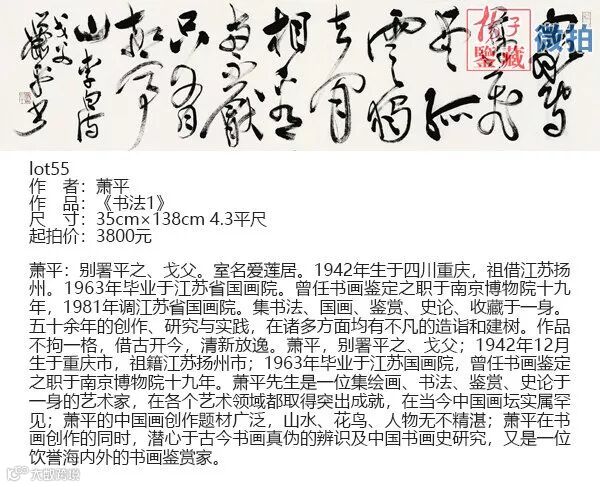 众鸟
高飞
尽孤
云独
去闲
相看
两不厌
只有
敬亭
山李白诗
戈父
萧平书
子
鉴藏
微拍
lot55
作 者：萧平
作 品：《书法1》
尺 寸：35cm×138cm 4.3平尺
起拍价：3800元
萧平：别署平之、戈父。室名爱莲居。1942年生于四川重庆，祖借江苏扬
州。1963年毕业于江苏省国画院。曾任书画鉴定之职于南京博物院十九
年，1981年调江苏省国画院。集书法、国画、鉴赏、史论、收藏于一身。
五十余年的创作、研究与实践，在诸多方面均有不凡的造诣和建树。作品
不拘一格，借古开今，清新放逸。萧平，别署平之、戈父；1942年12月
生于重庆市，祖籍江苏扬州市；1963年毕业于江苏国画院，曾任书画鉴定
之职于南京博物院十九年。萧平先生是一位集绘画、书法、鉴赏、史论于
一身的艺术家，在各个艺术领域都取得突出成就，在当今中国画坛实属罕
见；萧平的中国画创作题材广泛，山水、花鸟、人物无不精湛；萧平在书
画创作的同时，潜心于古今书画真伪的辨识及中国书画史研究，又是一位
饮誉海内外的书画鉴赏家。
大数跨境